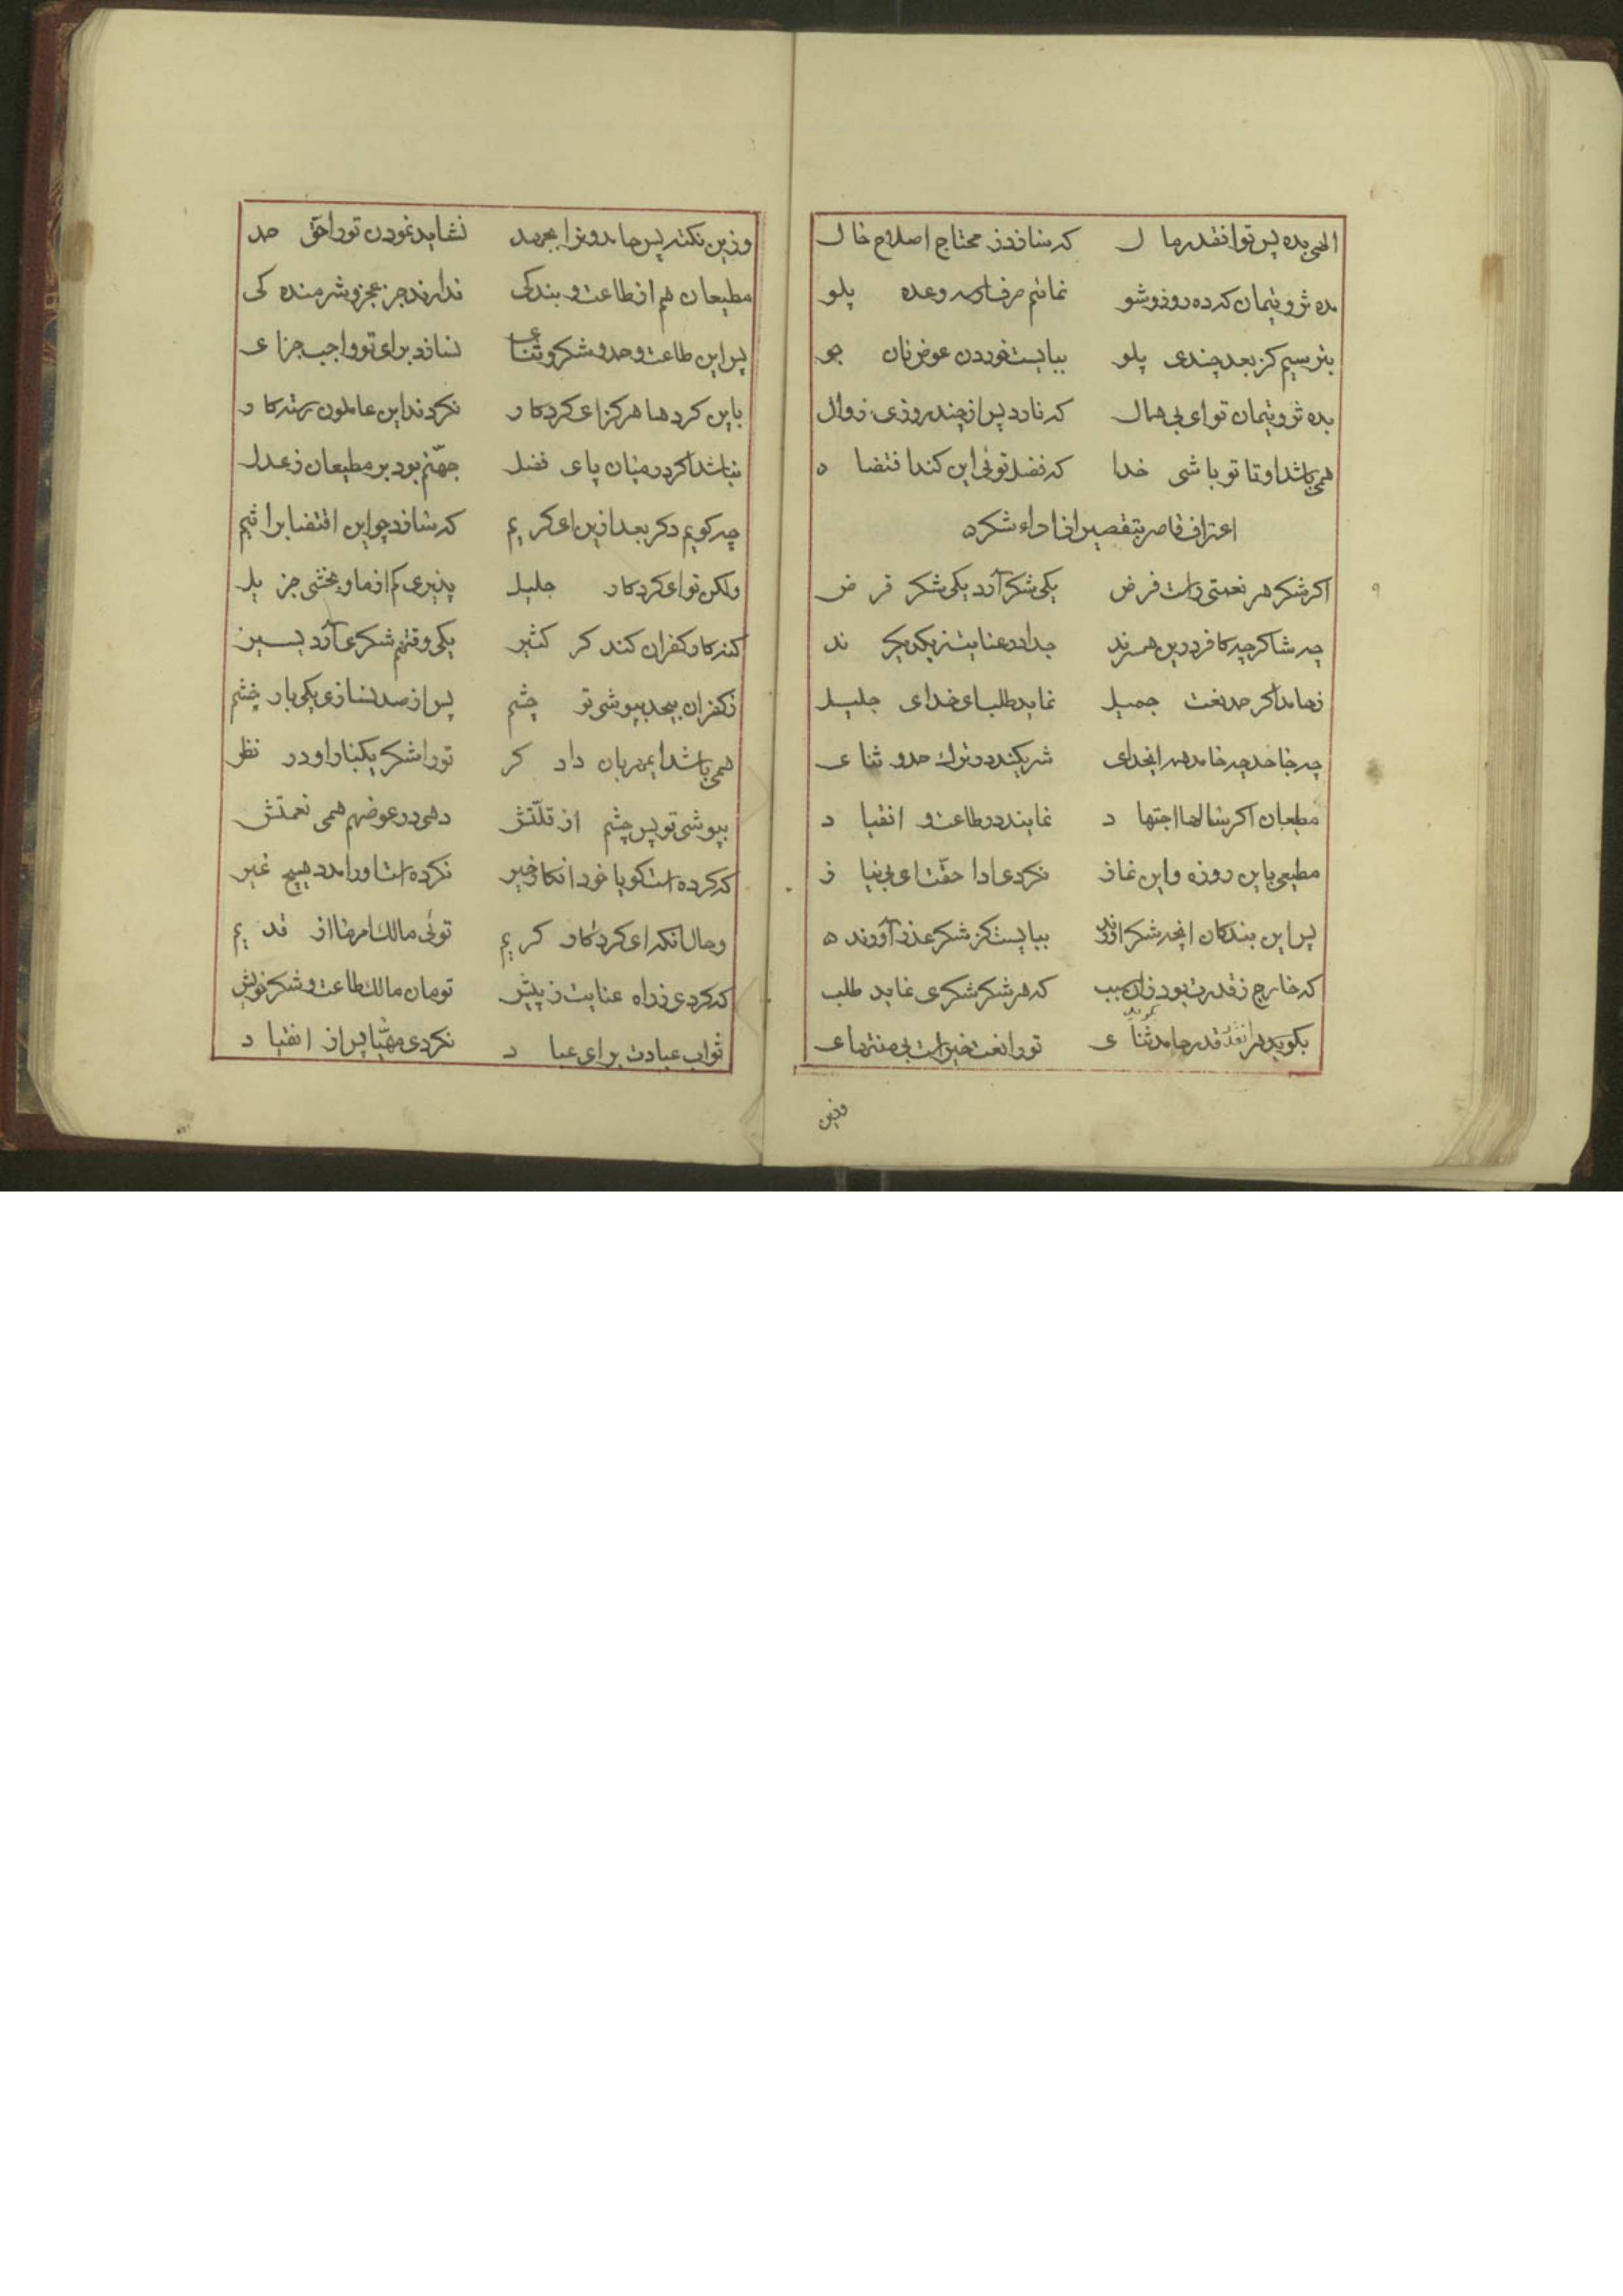 الهی بده پس تو انقدر مال که سازد ز محتاج اصلاح حال
مده ثروتیمان که ده روز و شو نمائیم صرف وعده پلو
بترسیم کز بعد چندی پلو ببایست خوردن عوض نان جو
بده ثروتیمان تو ای بی همال که نارد پس از چند روزی زوال
همی باشد او تا تو باشی خدا که فضل توئی این کند اقتضا ه
اعتراف قاصر بتقصیر از اداء شکره
اکر شکر هر نعمتی راست فرض یکی شکر آرد یکی شکر قرض
چه شاکر چه کافر درین همرند جدا در عنایت ز یکدیکر ند
ز حامد اکر حمد نعمت جمیل نماید طلب ای خدای جلیل
چه جاحد چه حامد همه ایخدای شریکند در ترک حمد و ثنای
مطیعان اکر سالها اجتهاد نمایند در طاعت و انقیاد
مطیعی باین روزه و این نماز نکردی ادا حقت ای بی نیاز
پس این بندکان انچه شکر اورند ببایست کز شکر عذر آورند ه
که خارج ز قدرت بود زان سبب که هر شکر شکری نماید طلب
بکوید هر انقدر حامد ثنای تو را نعمت خیر است بی منتهای
وزین
وزین نکته پس حامد و ترا بجهد نشاید نمودن تو را حق حمد
مطیعان هم از طاعت و بندکی ندارند جز عجز و شرمنده کی
پس این طاعت و حمد و شکر و ثنای نسازد برای تو واجب جزای
باین کردها هرکز ای کردکار نکردند این عاملون رستکار
نباشد اکر در میان پای فضل جهنم بود بر مطیعان ز عدل
چه کویم دکر بعد ازین ای کریم که سازد چو این اقتضا بر اثیم
ولکن تو ای کردکار جلیل پذیری کم از ما و بخشی جزیل
کنه کار کفران کند کر کثیر یکی وقتهم شکری آرد یسیر
ز کفران بیحد بپوشی تو چشم پس از صد نسازی یکی بار خشم
همی باشد ایمهربان دادکر تو را شکر یکبار او در نظر
بپوشی تو پس چشم از قلتش دهی در عوض هم همی نعمتش
که کرده است کویا خود انکار خیر نکرده است او را مدد هیچ غیر
و حال انکه ای کردکار کریم توئی مالک امر ما از قدیم
که کردی ز راه عنایت ز پیش تو مان مالک طاعت و شکر خویش
ثواب عبادت برای عباد نکردی مهیا پس از انقیاد